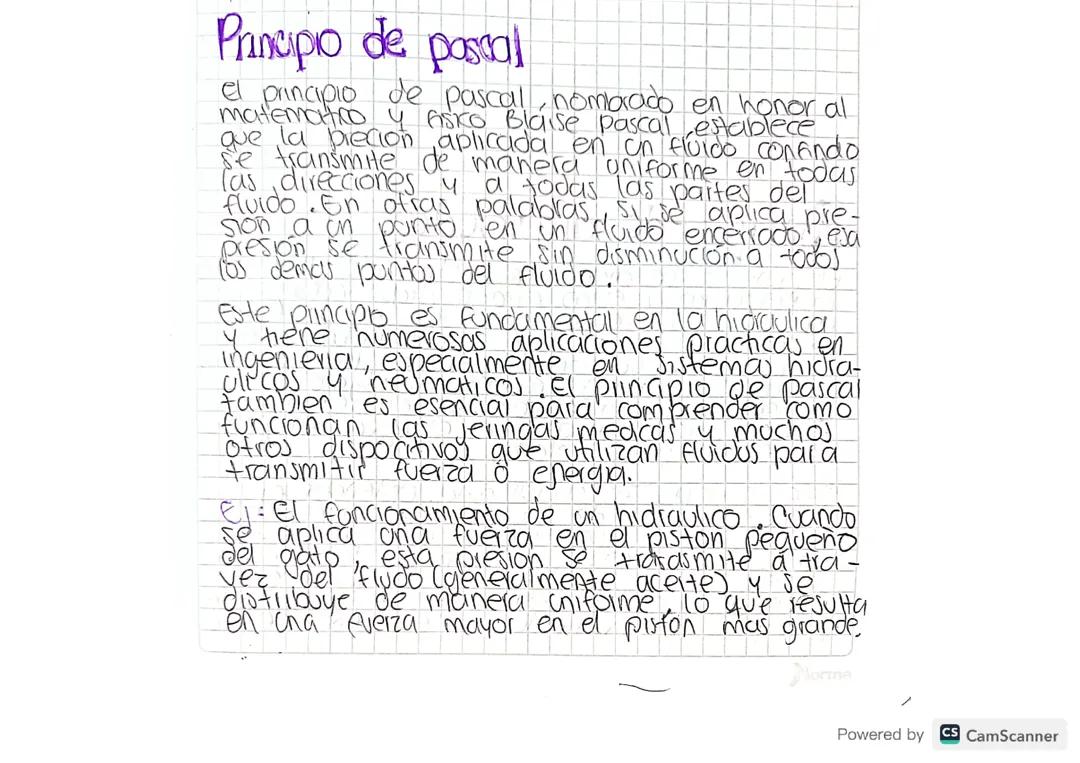 Principio de pascal
el principio de pascal, nombrado en honor al
matematico y fisico Blaise pascal, establece
que la precion aplicada en un fluido confindo
se transmite de manera uniforme en todas
las direcciones y a todas las partes del
fluido. En otras palabras, si se aplica pre-
sion a un punto en un fluido encerrado, esa
presión se transmite sin disminución a todos
los demas puntos del fluido.
Este principio es fundamental en la hidraulica
y tiene numerosas aplicaciones practicas en
ingenieria, especialmente en sistemas hidra-
ulicos y neumaticos. El principio de pascal
tambien es esencial para comprender como
funcionan las jeringas medicas y muchos
otros dispocitivos que utilizan fluidos para
transmitir fuerza o energia.
Ej: El funcionamiento de un hidraulico. Cuando
se aplica una fuerza en el piston pequeño
del gato, esta presion se trasasmite a tra-
vez del fluido (generalmente aceite) y se
distribuye de manera uniforme, lo que resulta
en una fuerza mayor en el piston mas grande.
Norma
Powered by CS CamScanner